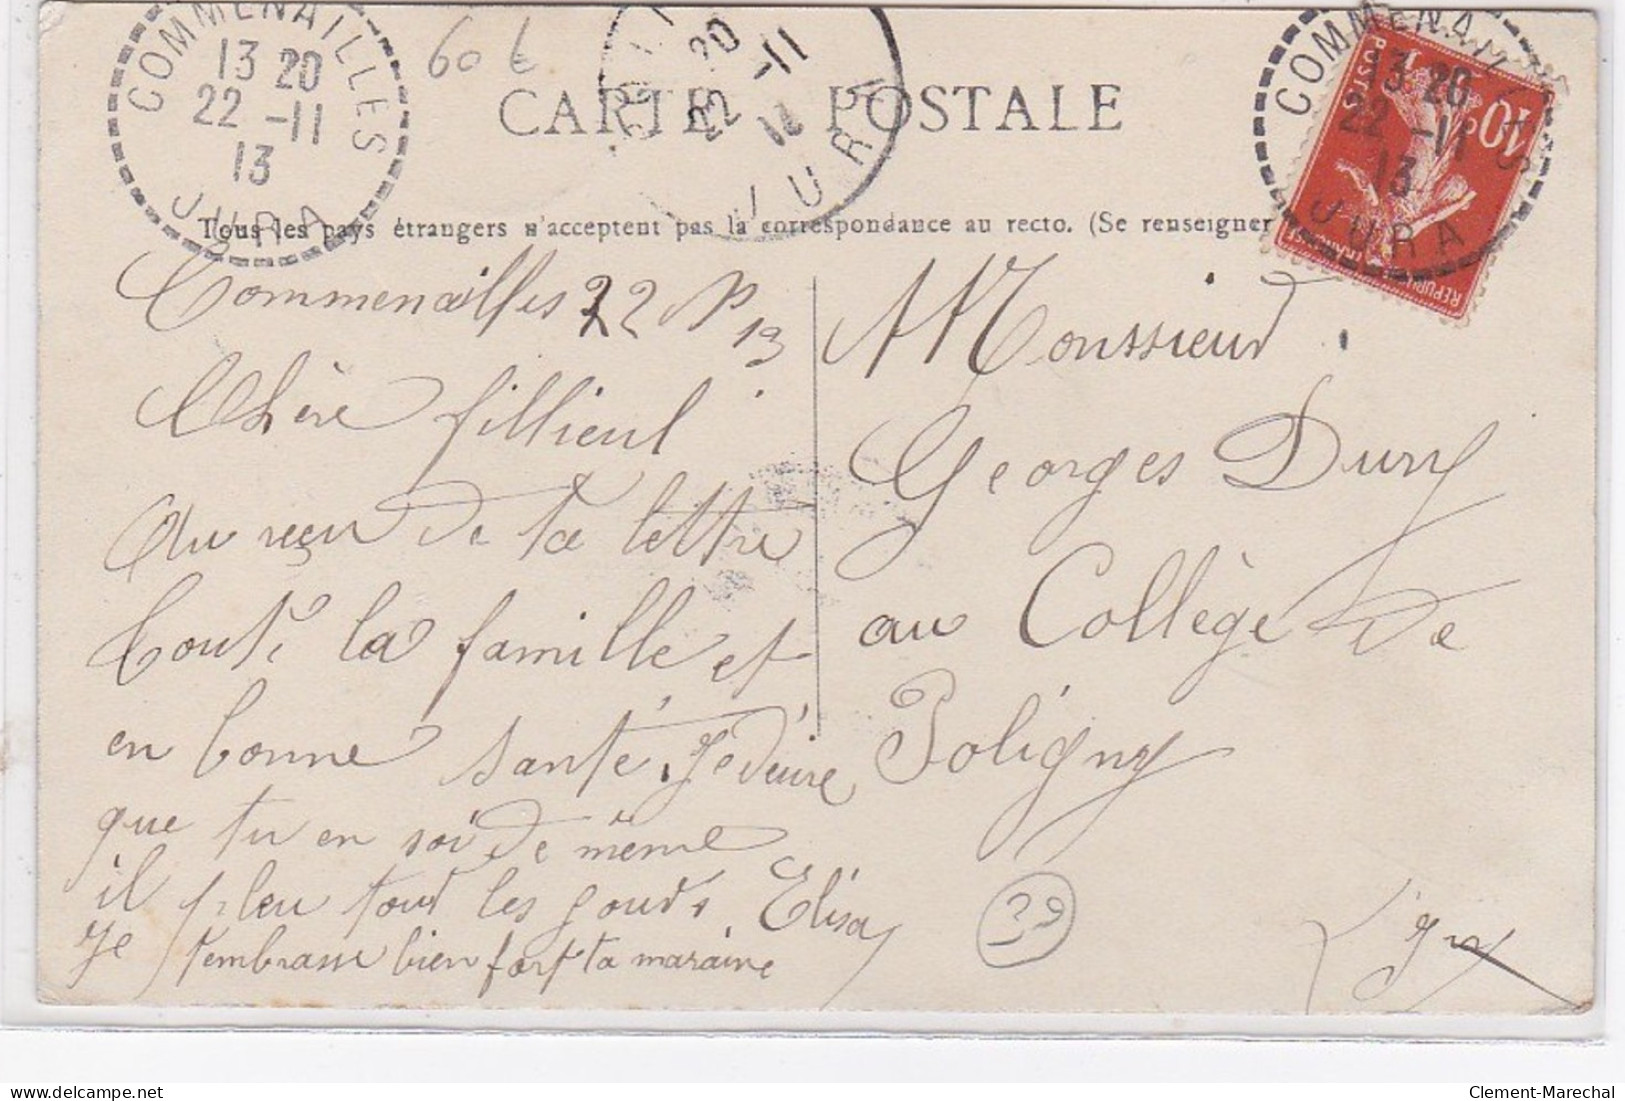 COMMENAILLES
13 20
22 -11
13
JURA
60 €
20
22 -11
JURA
COMMENAILLES
13 20
22 -11
13
JURA
POSTES
10c
CARTE POSTALE
Tous les pays étrangers n'acceptent pas la correspondance au recto. (Se renseigner
Commenailles 22 N 13
Chère fillieul
Au reçu de ta lettre
toute la famille et
en bonne santé. Je désire
que tu en soi de même
il pleu toud les gouds Elisa
Je tembrasse bien fort ta maraine
Monssieur
Georges Dury
au Collège de
Poligny
39
Clement-Marechal